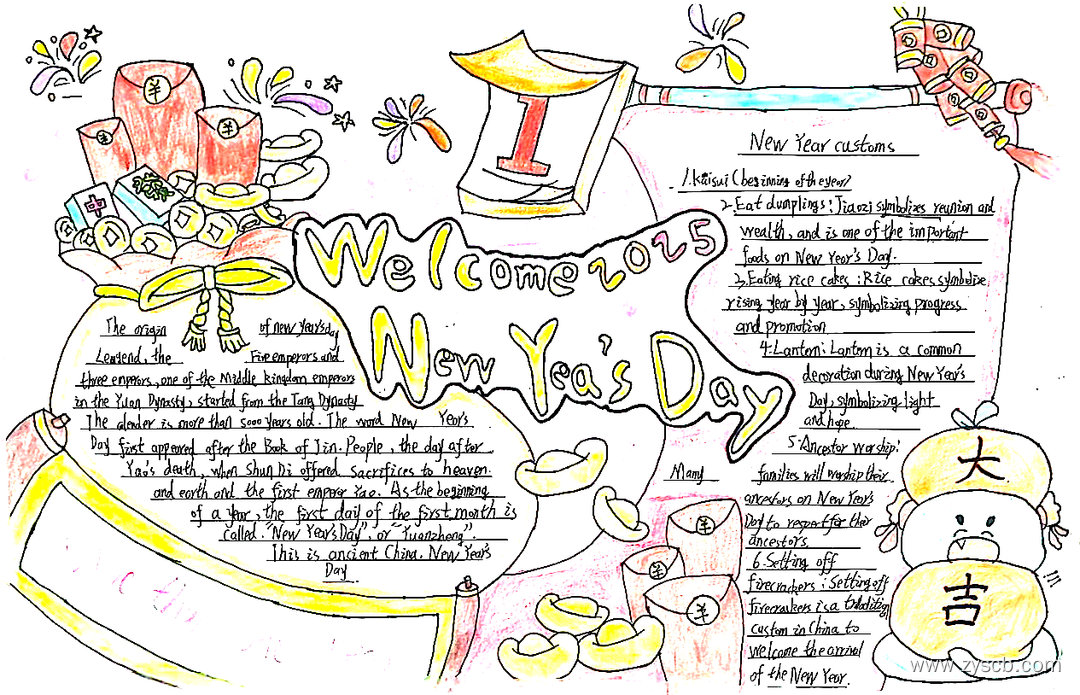 1
Welcome 2025
New Yea's Day
中
發
The origin of new Year'sday
Lengend, the Five emperors and
three emperors, one of the Middle kingdom emperors
in the Yuan Dynasty, started from the Tang Dynasty
The alender is more than 5000 years old. The word New Yeor's
Day first appeared after the Book of Jin. People, the day after
Yao's death, when Shun Di offered sacrifices to heaven.
and earth and the first emperor Yao. As the beginning
of a year, the first day of the first month is
called. "New Year's Day", or "Yuanzheng".
This is ancient China. New Year's
Day
New Year customs
1. kaisui (beginning of the year)
2. Eat dumplings: Jiaozi symbolizes reunion and
wealth, and is one of the important
foods on New Year's Day.
3. Eating rice cakes: Rice cakes symbolize
rising year by year, symbolizing progress
and promotion
4. Lantern: Lantern is a common
decoration during New Year's
Day, symbolizing light
and hope.
5 Ancestor worship:
Many families will worship their
ancestors on New Year's
Day to respect for their
ancestors.
6. Setting off
firecrackers: Setting off
firecrackers is a
custom in China to
welcome the arrival
of the New Year.
大
吉
www.zyscb.com